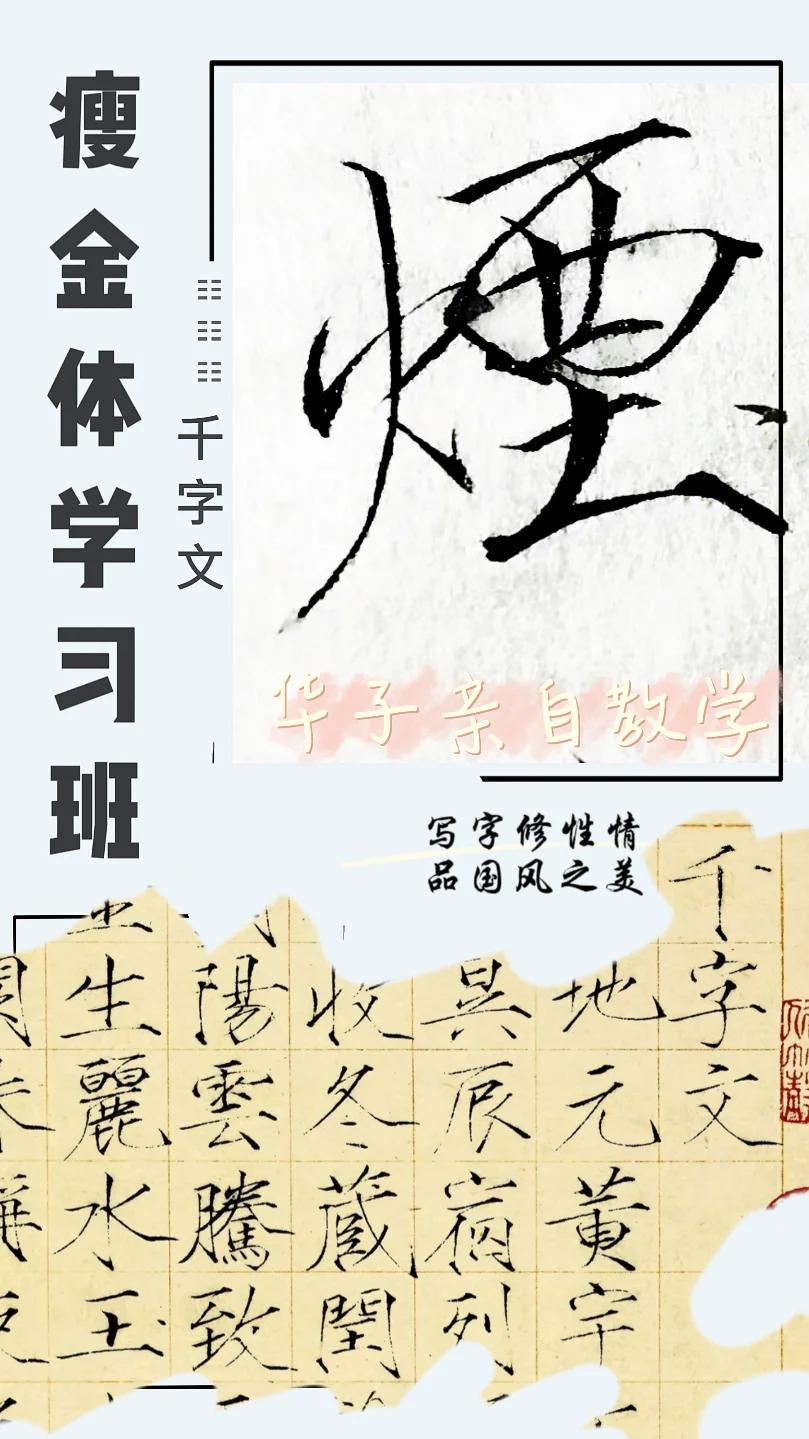 瘦金体学习班
千字文
煙
华子亲自教学
写字修性情
品国风之美
千字文
地元黄宇
昃辰宿列
收冬蔵閏
陽雲騰致
生麗水玉